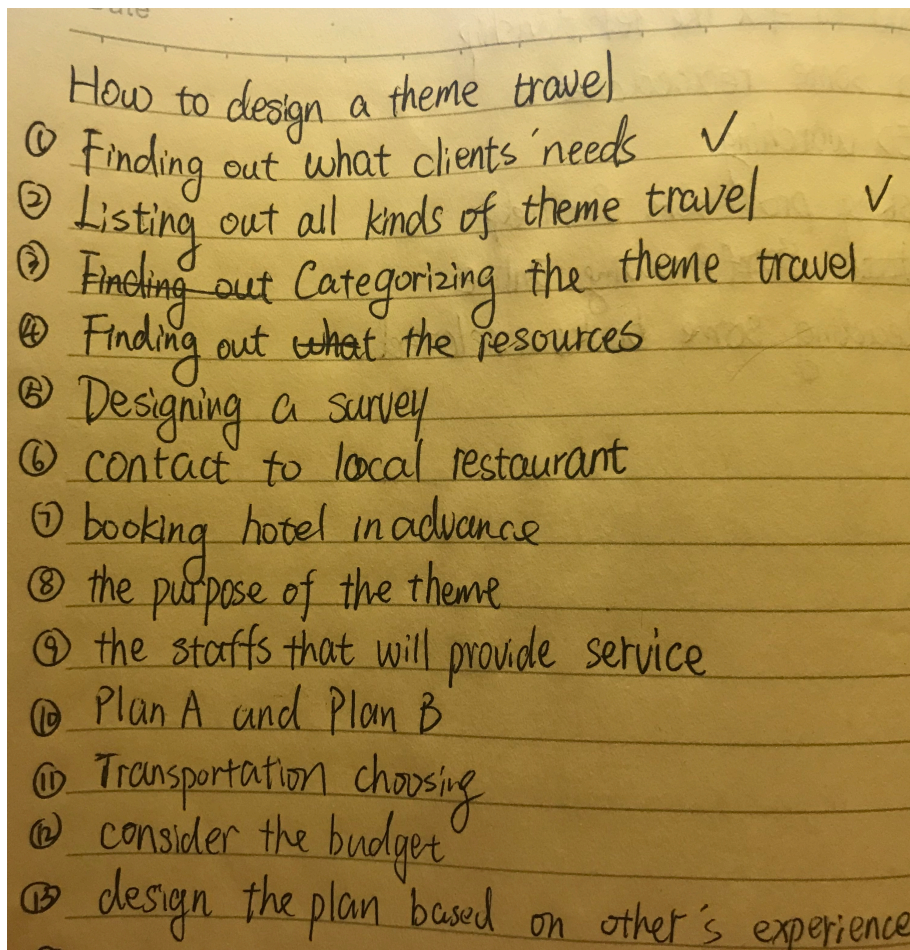 How to design a theme travel
① Finding out what clients' needs ✓
② Listing out all kinds of theme travel ✓
③ ~~Finding out~~ Categorizing the theme travel
④ Finding out ~~what~~ the resources
⑤ Designing a survey
⑥ contact to local restaurant
⑦ booking hotel in advance
⑧ the purpose of the theme
⑨ the staffs that will provide service
⑩ Plan A and Plan B
⑪ Transportation choosing
⑫ consider the budget
⑬ design the plan based on other's experience